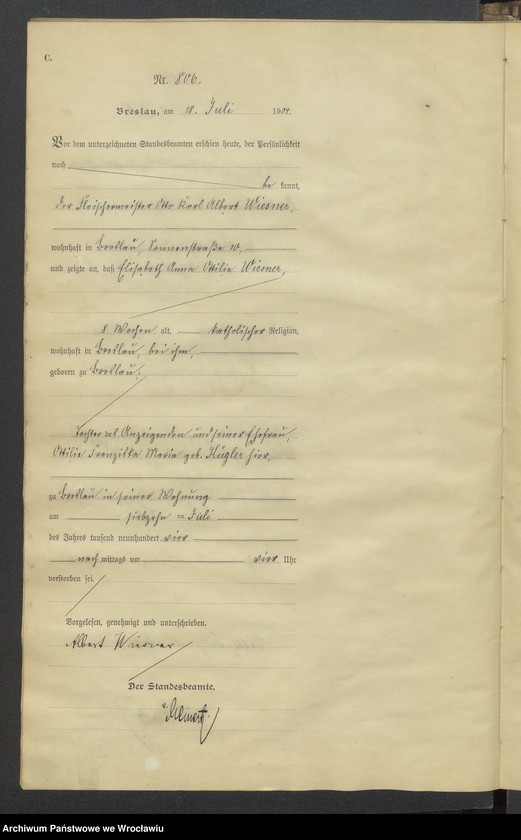 C.
Nr. 806.
Breslau, am 18. Juli 1904.
Vor dem unterzeichneten Standesbeamten erschien heute, der Persönlichkeit
nach
be kannt,
der Fleischermeister Otto Karl Albert Wiesner,
wohnhaft in Breslau, Sonnenstraße 10,
und zeigte an, daß Elisabeth Anna Ottilie Wiesner,
8 Wochen alt, katholischer Religion,
wohnhaft in Breslau, bei ihm,
geboren zu Breslau,
Tochter des Anzeigenden und seiner Ehefrau,
Ottilie Franziska Maria geb. Kügler hier,
zu Breslau in seiner Wohnung
am siebzehn ten Juli
des Jahres tausend neunhundert vier
nach mittags um vier Uhr
verstorben sei.
Vorgelesen, genehmigt und unterschrieben.
Albert Wiesner
Der Standesbeamte.
Archiwum Państwowe we Wrocławiu